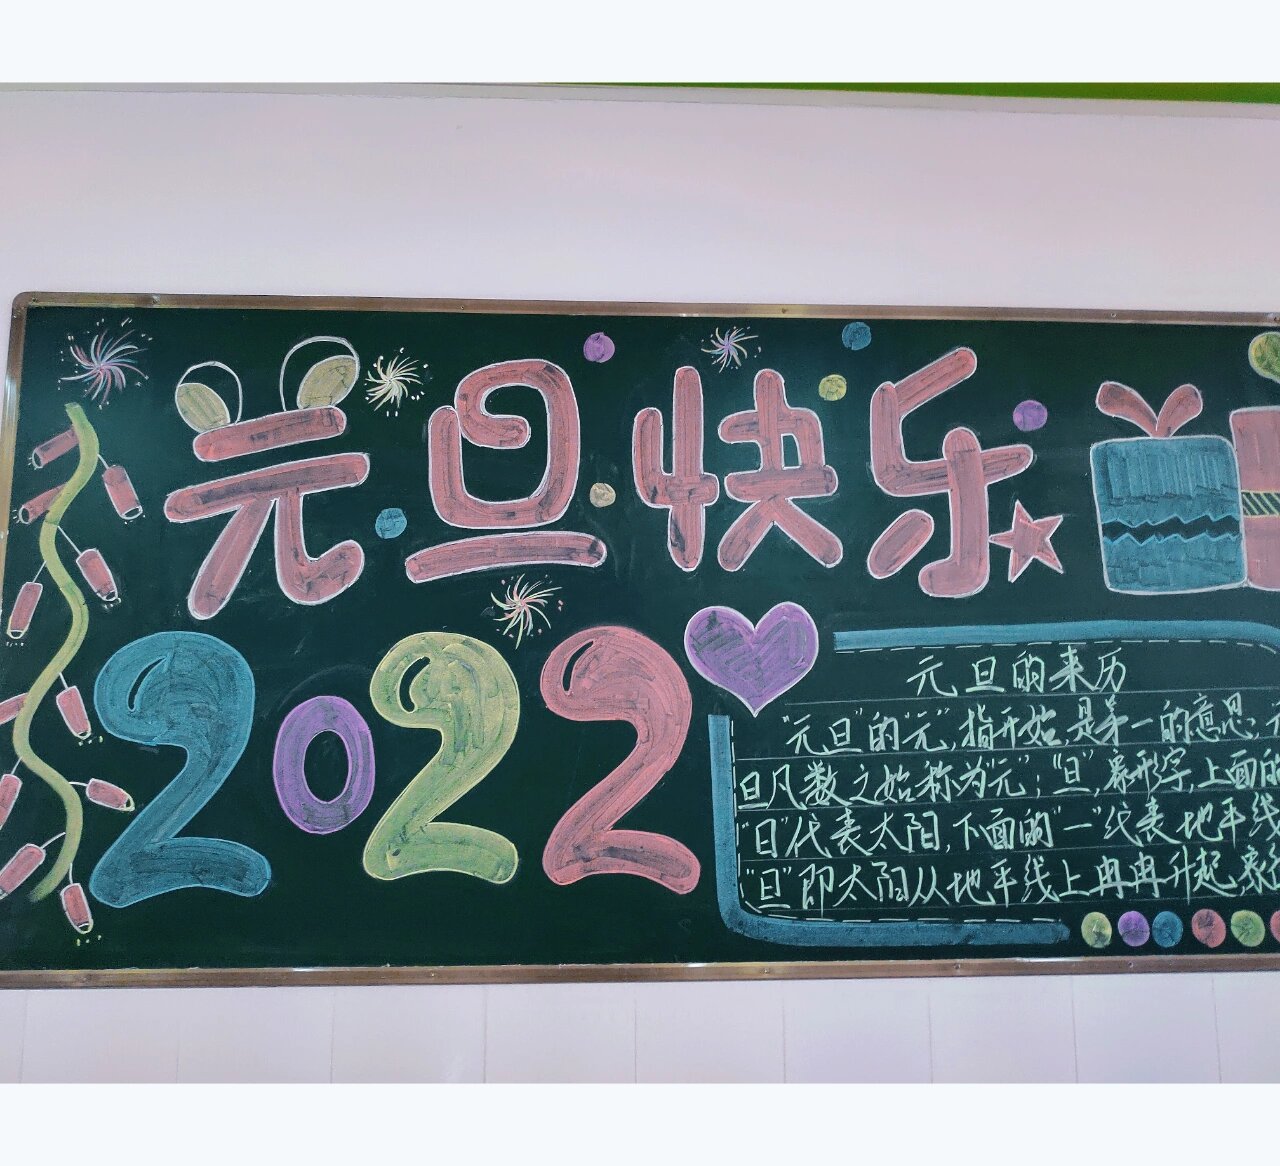 元旦快乐
2022
元旦的来历
"元旦"的"元",指开始,是第一的意思;
旦凡数之始称为"元";"旦",象形字,上面的
"日"代表太阳,下面的"一"代表地平线
"旦"即太阳从地平线上冉冉升起,象